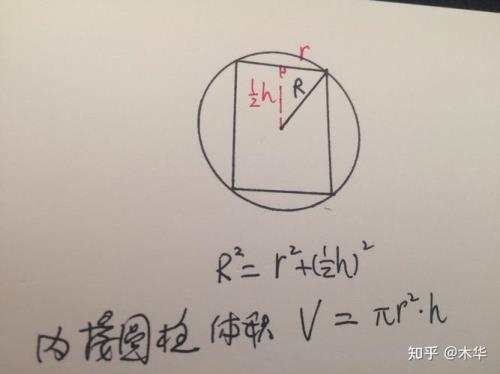 r
½h
R
R²=r²+(½h)²
内接圆柱体积 V=πr²·h
知乎 @木华